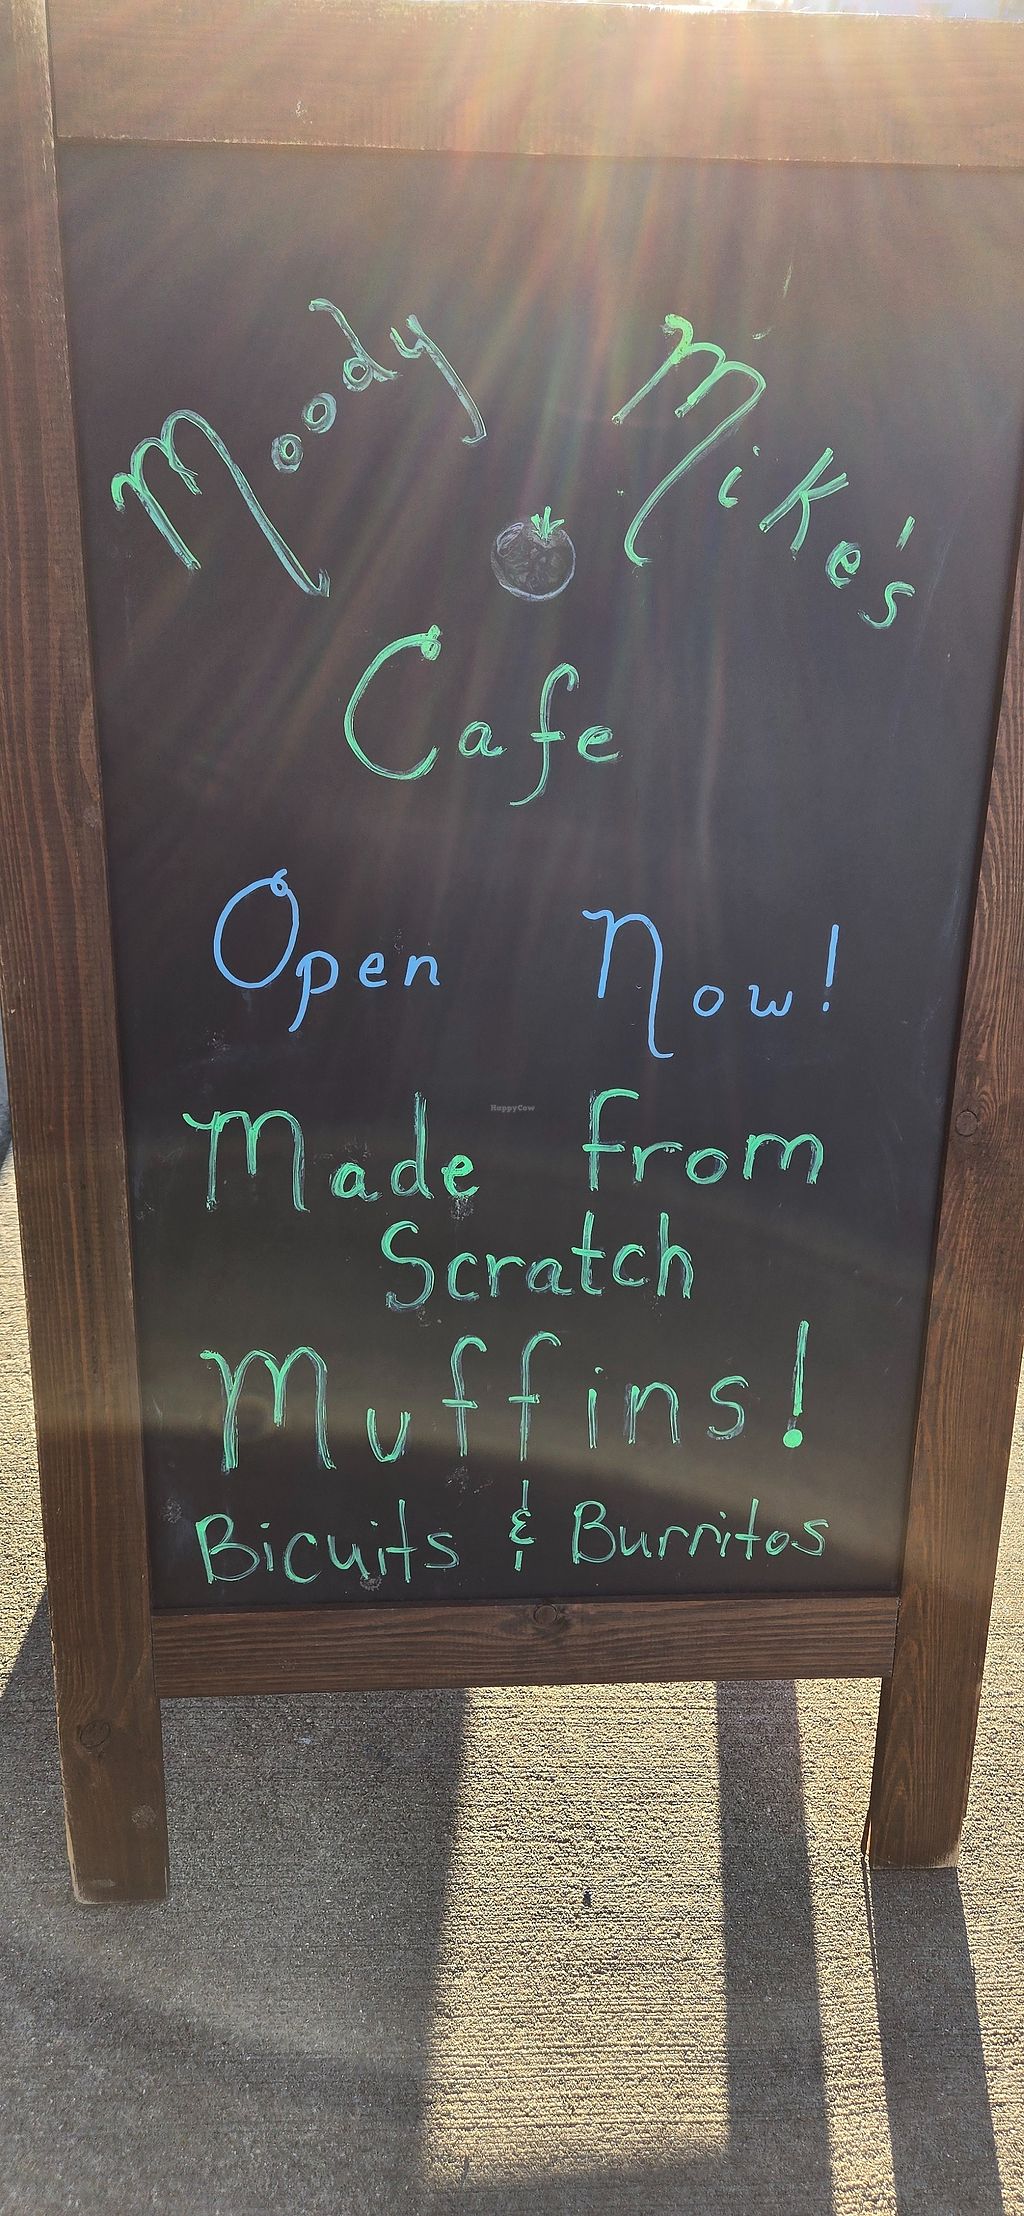 Moody Mike's
Cafe
Open Now!
HappyCow
Made from
Scratch
Muffins!
Bicuits & Burritos